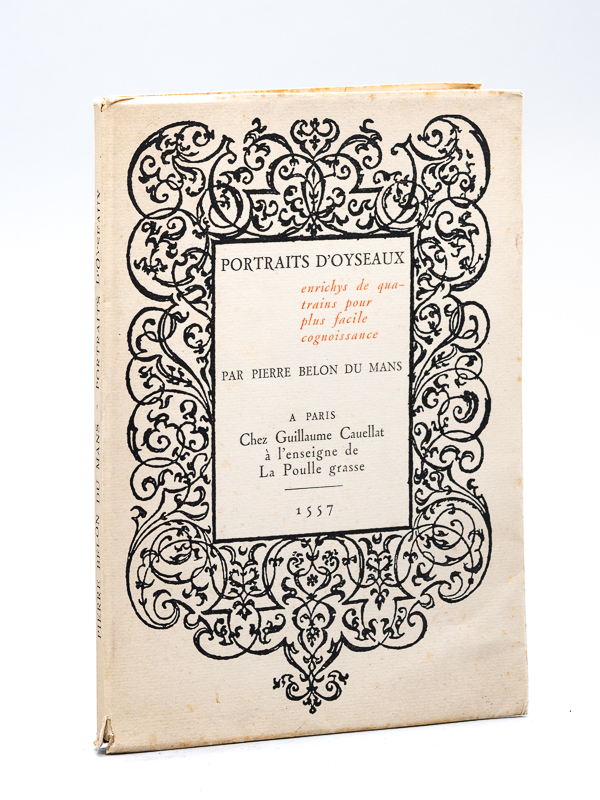 PORTRAITS D'OYSEAUX
enrichys de qua-
trains pour
plus facile
cognoissance
PAR PIERRE BELON DU MANS
A PARIS
Chez Guillaume Cauellat
à l'enseigne de
La Poulle grasse
1557
PIERRE BELON DU MANS - PORTRAITS D'OYSEAUX